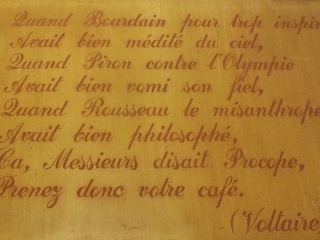 Quand Bourdain pour trop inspir
Avait bien médité du ciel,
Quand Piron contre l'Olympie
Avait bien vomi son fiel,
Quand Rousseau le misanthrope
Avait bien philosophé,
Ça, Messieurs disait Procope,
Prenez donc votre café.
(Voltaire)